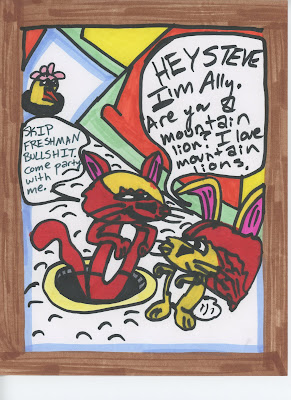 HEY STEVE
I'm Ally.
Are ya a
mountain
lion? I love
mountain
lions.
SKIP
FRESHMAN
BULLSHIT.
Come party
with me.